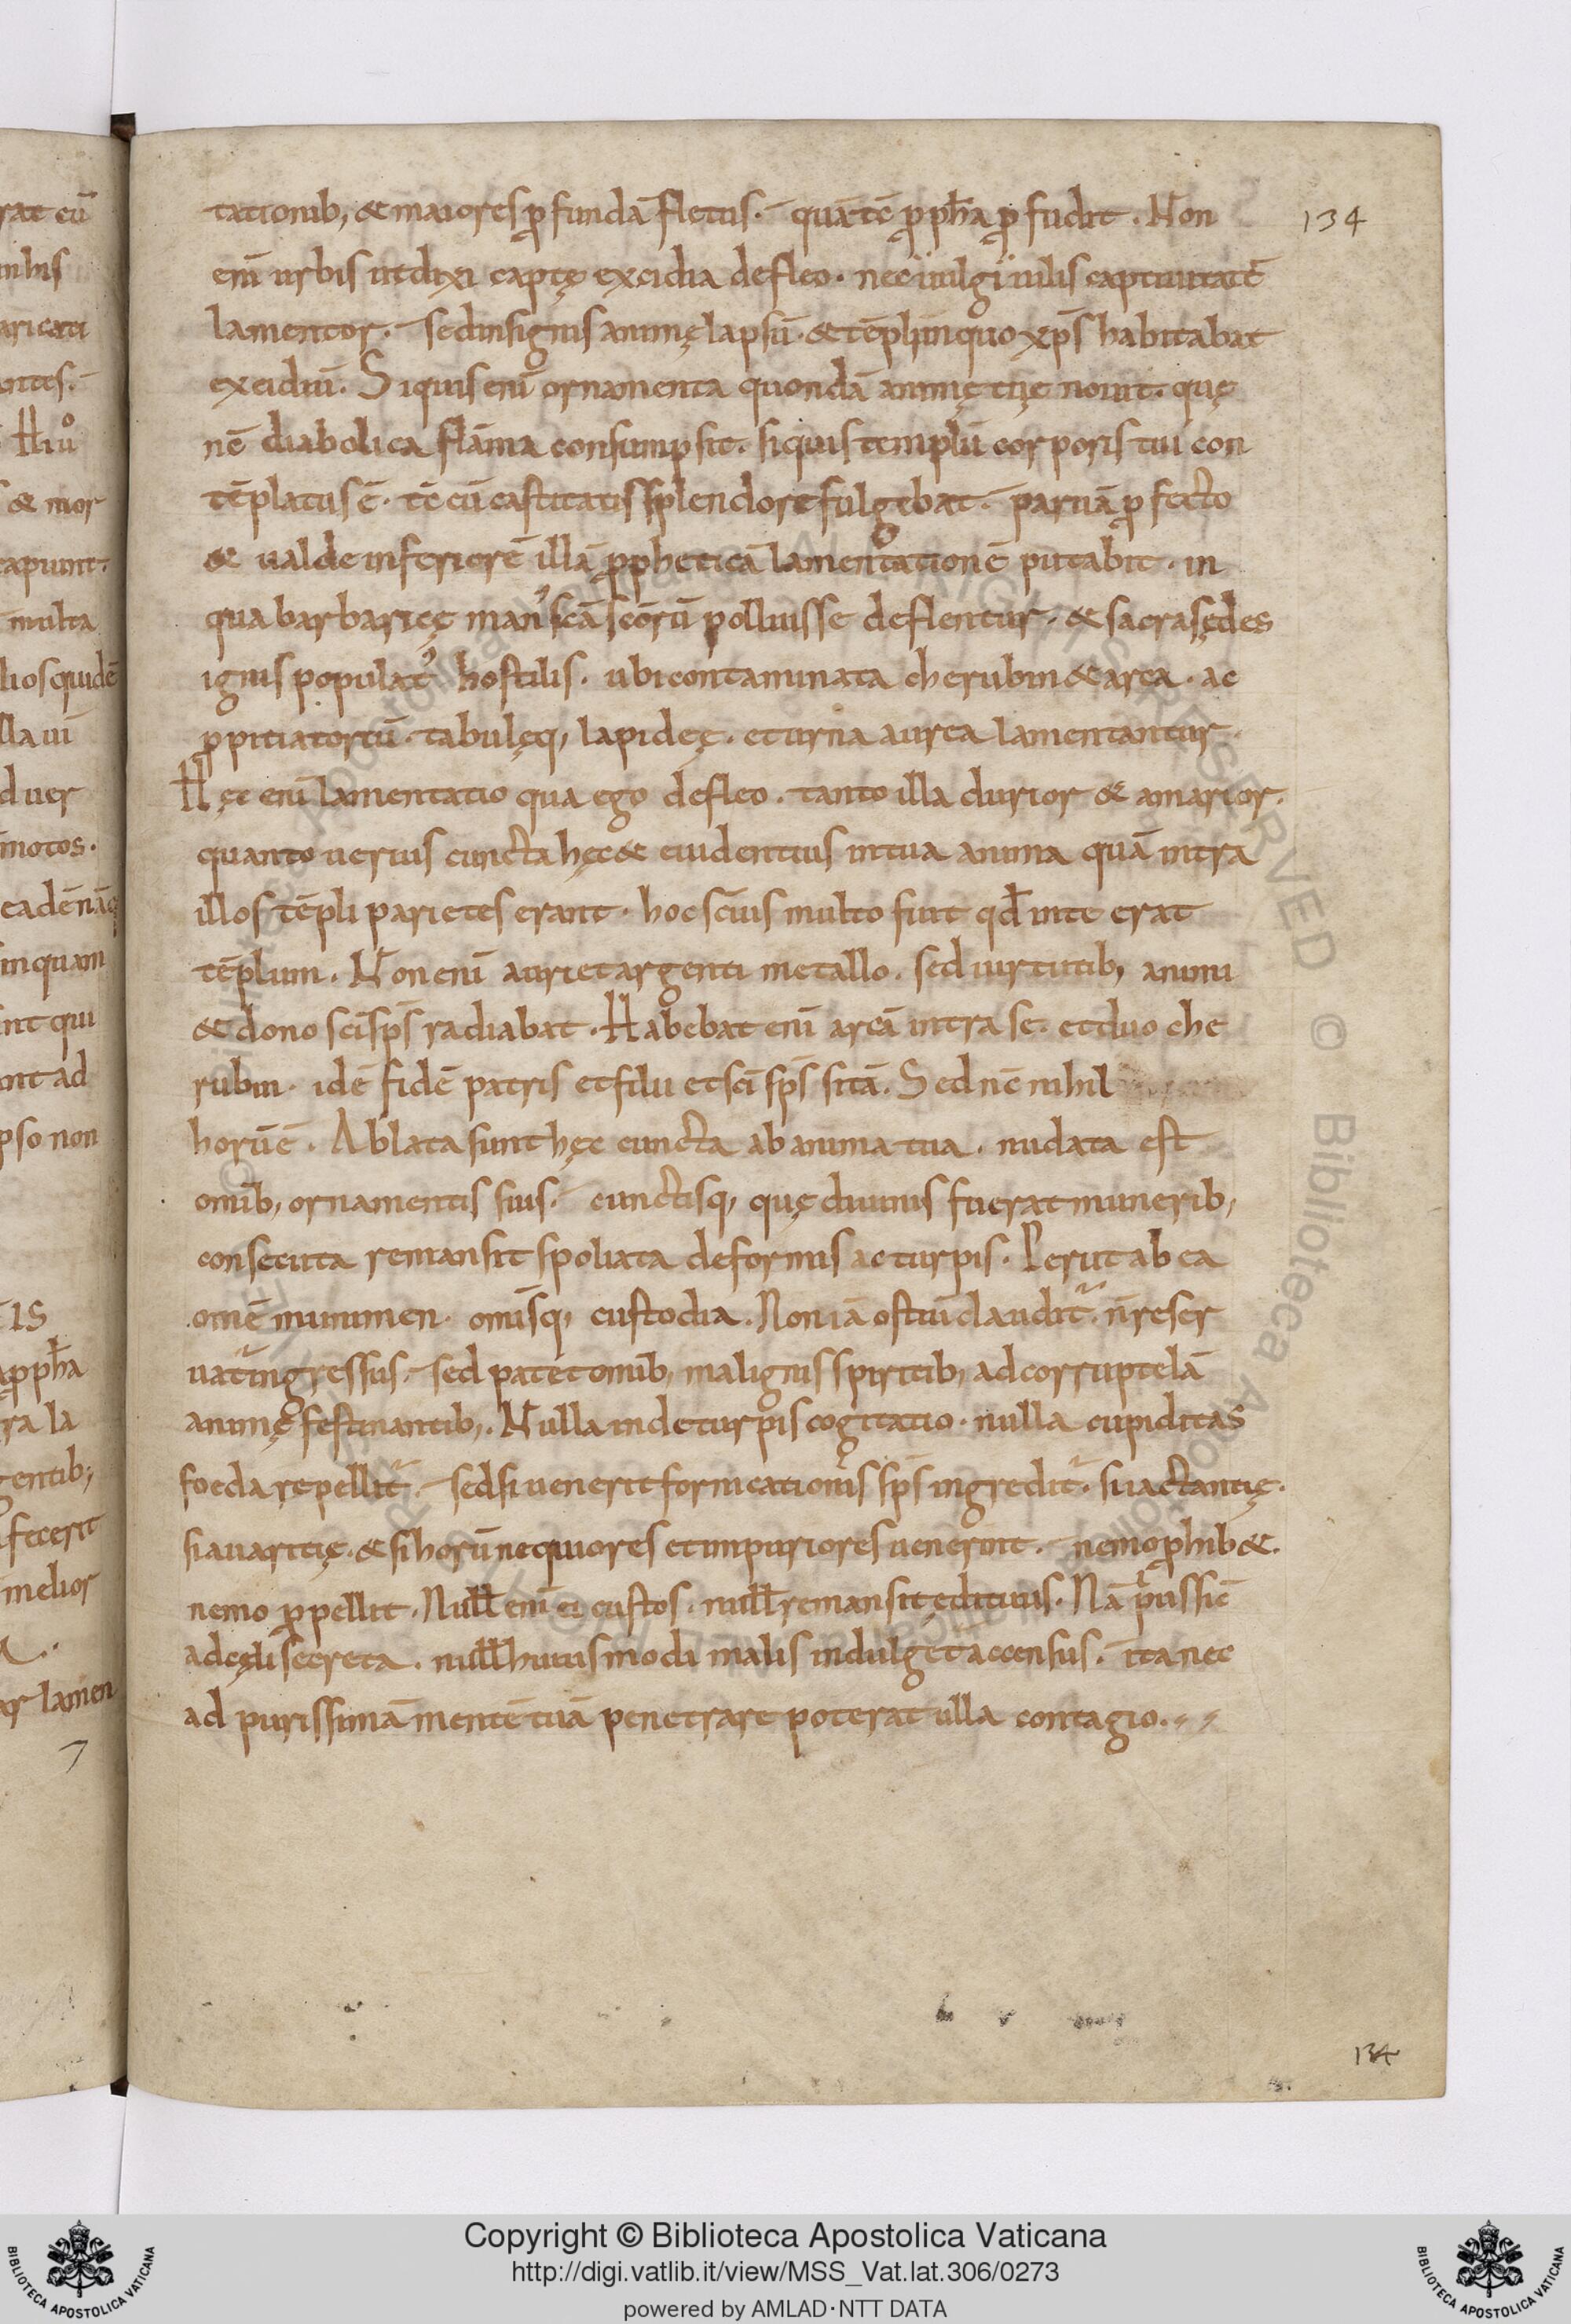 tationib; & maiores ꝓfundā fletus. quā tē ꝓph̄a ꝓfudit. Non
134
eni̅ urbis ut dixi captę excidia defleo. nec uulgi uilis captiuitatē
lamentor. sed insignis animę lapsū. & tēpli in quo xp̄s habitabat
excidiū. Si quis eni̅ ornamenta quondā animę tuę nouit. quę
nc̄ diabolica flāma consumpsit. si quis templū corporis tui con
tēplatus ē. tc̄ cū castitatis splendore fulgebat. paruā ꝓfecto
& ualde inferiorē illā ꝓpheticā lamentationē putabit. in
qua barbarięę man᾽ sc̄ā sc̄orū polluisse deflentur. & sacras ędes
ignis populat᾽ hostilis. ubi contaminata cherubin & arca. ac
ꝓpitiatoriū. tabulęq; lapideę. et urna aurea lamentantur.
Hęc eni̅ lamentatio qua ego defleo. tanto illa durior & amarior.
quanto uerius cuncta hęc & euidentius in tua anima quā intra
illos tēpli parietes erant. hoc sc̄ius multo fuit qd̄ in te erat
tēplum. Non eni̅ auri et argenti metallo. sed uirtutib; animi
& dono sc̄i sp̄s radiabat. Habebat eni̅ arcā intra se. et duo che
rubin. idē fidē patris et filii et sc̄i sp̄s sitā. Sed nc̄ nihil
horū ē. Ablata sunt hęc cuncta ab anima tua. nudata est
omib; ornamentis suis. cunctisq; quę diuinis fuerat munerib;
consecuta remansit spoliata deformis ac turpis. Periit ab ea
omē munimen. omisq; custodia. Non iā ostiū claudit᷑. n̄ reser
uat᷑ ingressus. sed patet omib; malignis spiritib; ad corruptelā
animę festinantib;. Nulla inde turpis cogitatio. nulla cupiditas
foeda repellit᷑. sed si uenerit fornicationis sp̄s ingredit᷑. si iactantię.
si auaritię. & si horū nequiores et inpuriores uenerint. nemo ꝓhib&.
nemo ꝓpellit. Null̄ eni̅ ei custos. null̄ remansit ędituus. Nā p̄us sic̄
ad cęli secreta. null̄ huiusmodi malis indulget accensus. ita nec
ad purissimā mentē tuā penetrare poterat ulla contagio.
134
Copyright © Biblioteca Apostolica Vaticana
http://digi.vatlib.it/view/MSS_Vat.lat.306/0273
powered by AMLAD·NTT DATA